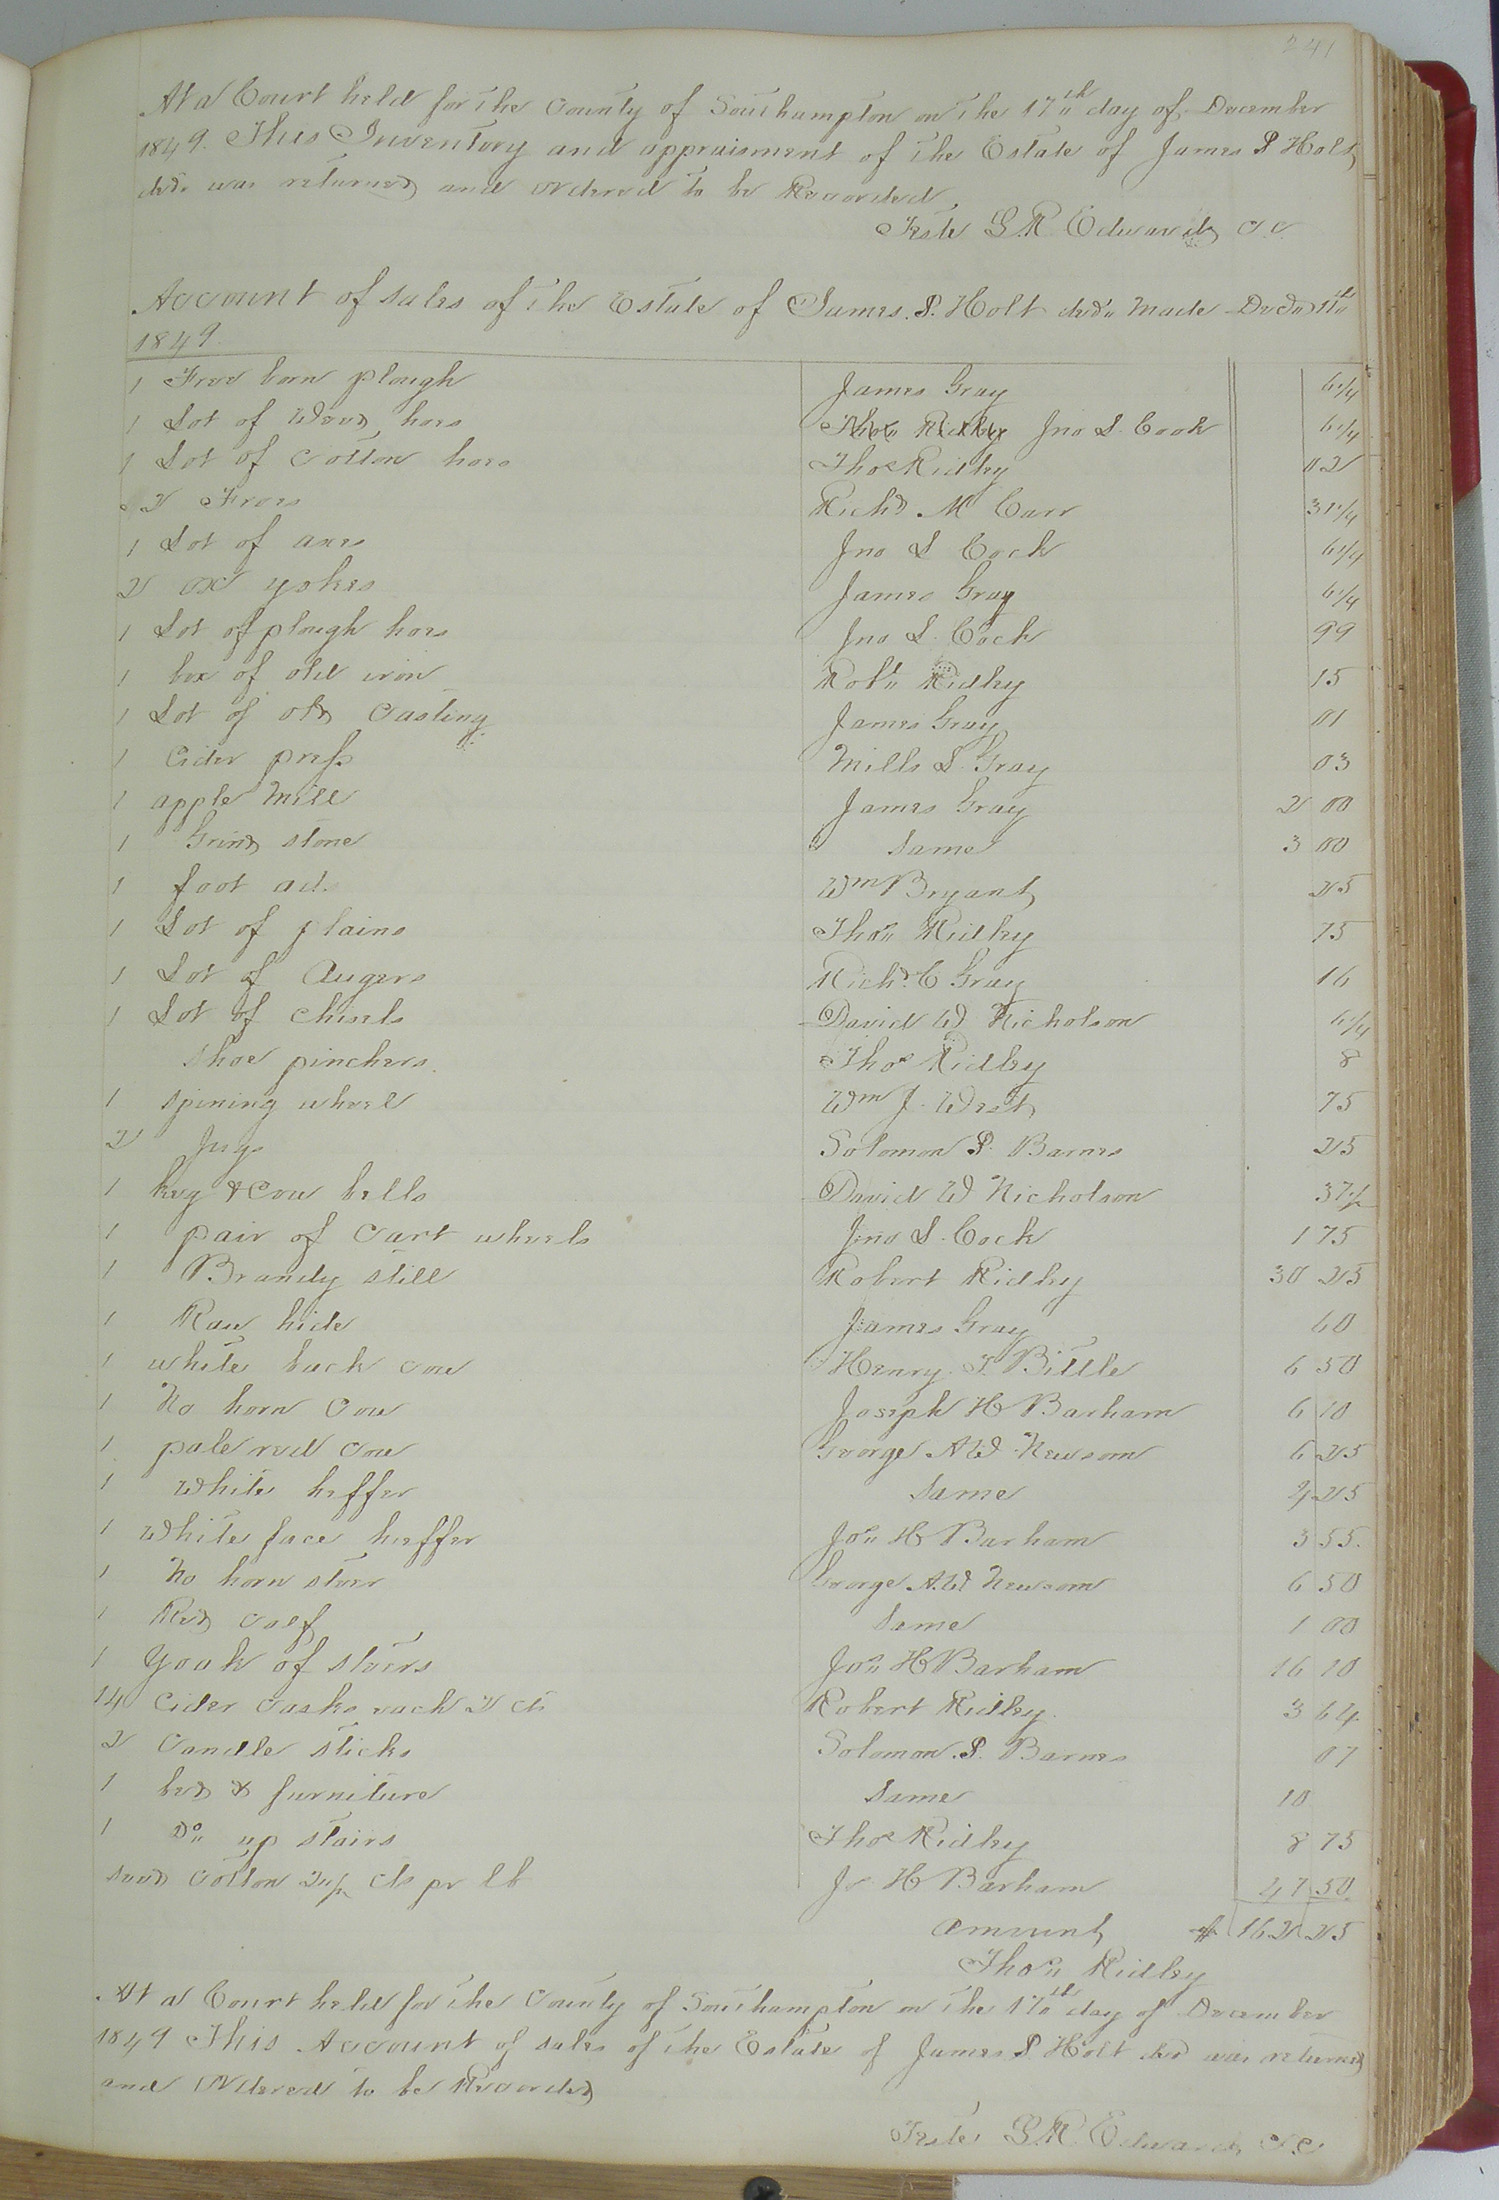 241
At a Court held for the County of Southampton on the 17th day of December
1849. This Inventory and appraisment of the Estate of James P Holt
decd. was returned and ordered to be Recorded
Teste L R Edwards C.C.
Account of sales of the Estate of James. P. Holt decd. made Decr 11th
1849.
1 Free born plough James Gray 6 1/4
1 Lot of weed hoes Thos Ridley Jno L. Cook 6 1/4
1 Lot of cotton hoes Thos Ridley 02
2 Froes Richd. M Carr 31 1/4
1 Lot of axes Jno L Cock 6 1/4
2 ox yokes James Gray 6 1/4
1 Lot of plough hoes Jno L. Cock 99
1 box of old iron Robt. Ridley 15
1 Lot of old casting James Gray 01
1 Cider press Mills L. Gray 03
1 apple Mill James Gray 2 00
1 Grind stone Same 3 00
1 foot ad. Wm Bryant 25
1 Lot of plains Thos. Ridley 75
1 Lot of Augers Richd. C Gray 16
1 Lot of chisels David W Nicholson 6 1/4
Shoe pinchers. Thos Ridley 8
1 spining wheel Wm J. West 75
2 Jugs Solomon P. Barnes 25
1 keg & Cow bells David W Nicholson 37 1/2
1 pair of cart wheels Jno L. Cock 1 75
1 Brandy still Robert Ridley 30 25
1 Raw hide James Gray 60
1 white back cow Henry T. Bittle 6 50
1 No horn Cow Joseph H Barham 6 10
1 pale red cow George A W Newsom 6 25
1 White heffer Same 4 25
1 White face heffer Jos. H Barham 3 55.
1 No horn steer George A.W Newsom 6 50
1 Red calf Same 1 00
1 Yoak of steers Jos. H Barham 16 10
14 Cider casks each 26 cts Robert Ridley. 3 64
2 Candle sticks Solomon. P. Barnes 07
1 bed & furniture Same 10
1 Do. up stairs Thos Ridley 8 75
seed cotton 2 1/2 cts pr lb Js H Barham 47 50
Amount $ 162 25
Thos. Ridley
At a Court held for the County of Southampton on the 17th day of December
1849 This Account of sales of the Estate of James P. Holt decd was returned
and Ordered to be Recorded
Teste L R Edwards C.C.